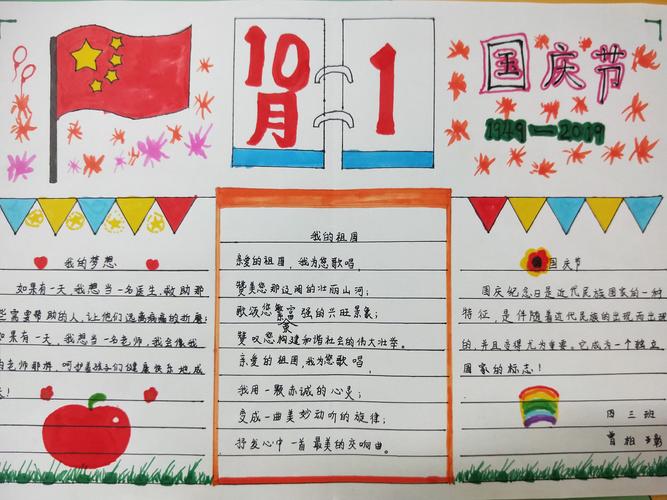 10月
1
国庆节
1949—2019
我的梦想
如果有一天,我想当一名医生,救助那
些需要帮助的人,让他们远离病痛的折磨;
如果有一天,我想当一名老师,我会像我
的老师那样,呵护着孩子们健康快乐地成
我的祖国
亲爱的祖国,我为您歌唱,
赞美您那辽阔的壮丽山河;
歌颂您繁富强的兴旺景象;
荣
赞叹您构建和谐社会的伟大壮举。
亲爱的祖国,我为您歌唱,
我用一颗赤诚的心灵;
变成一曲美妙动听的旋律;
抒发心中一首最美的交响曲。
国庆节
国庆纪念日是近代民族国家的一种
特征,是伴随着近代民族的出现而出现
的,并且变得尤为重要。它成为一个独立
国家的标志!
四三班
曾